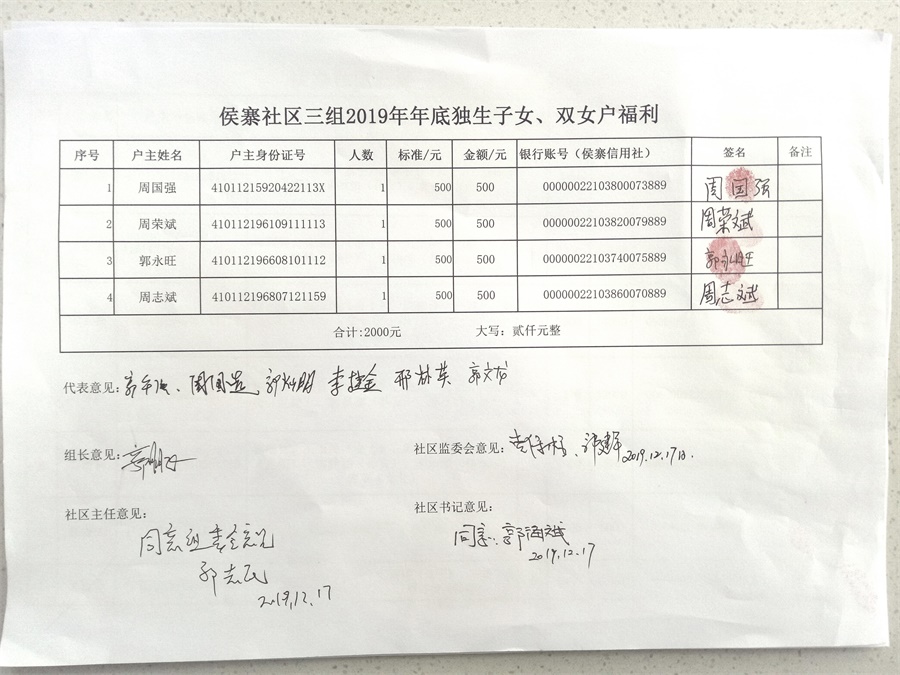 侯寨社区三组2019年年底独生子女、双女户福利
序号 户主姓名 户主身份证号 人数 标准/元 金额/元 银行账号（侯寨信用社） 签名 备注
1 周国强 41011215920422113X 1 500 500 00000022103800073889 周国强
2 周荣斌 410112196109111113 1 500 500 00000022103820079889 周荣斌
3 郭永旺 410112196608101112 1 500 500 00000022103740075889 郭永旺
4 周志斌 410112196807121159 1 500 500 00000022103860070889 周志斌
合计:2000元 大写：贰仟元整
代表意见：
组长意见：
社区监委会意见： 2019.12.17日.
社区主任意见：
同意组委会意见
2019.12.17
社区书记意见：
同意：郭海斌
2019.12.17